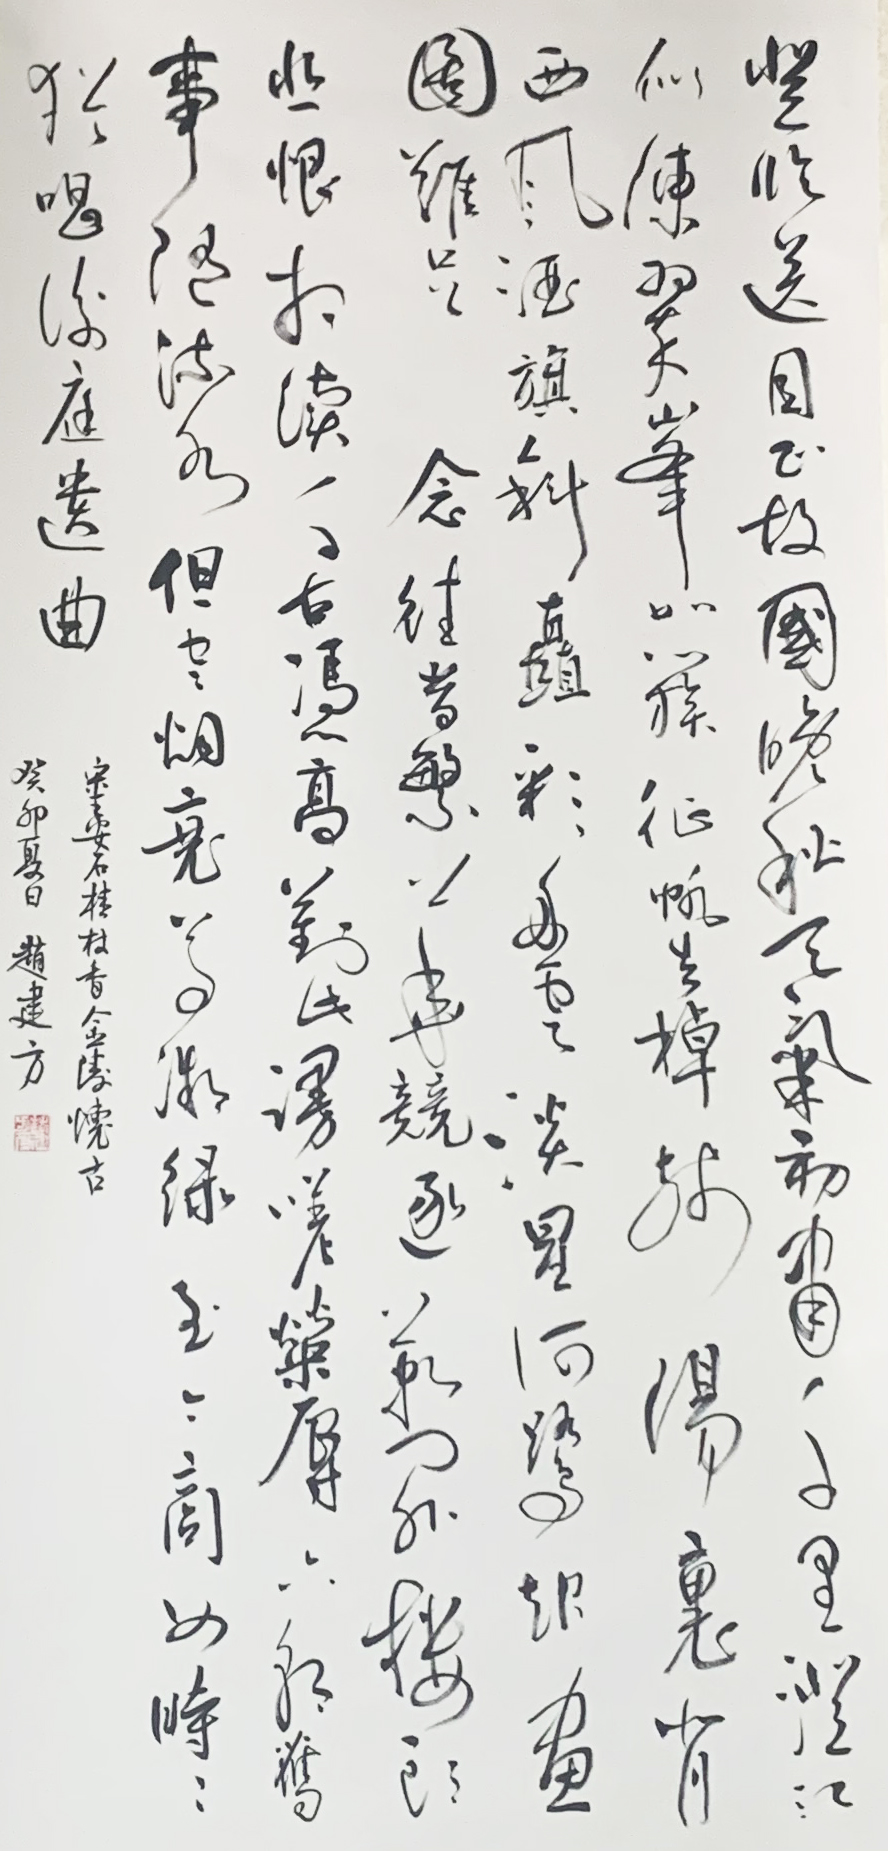 登臨送目正故國晚秋天氣初肅千里澄江
似練翠峯如簇征帆去棹殘陽裏背
西風酒旗斜矗彩舟雲淡星河鷺起畫
圖難足 念往昔繁華競逐歎門外樓頭
悲恨相續千古憑高對此謾嗟榮辱六朝舊
事隨流水但寒烟衰草凝綠至今商女時〻
猶唱後庭遺曲
宋王安石桂枝香金陵懷古
癸卯夏日 趙建方